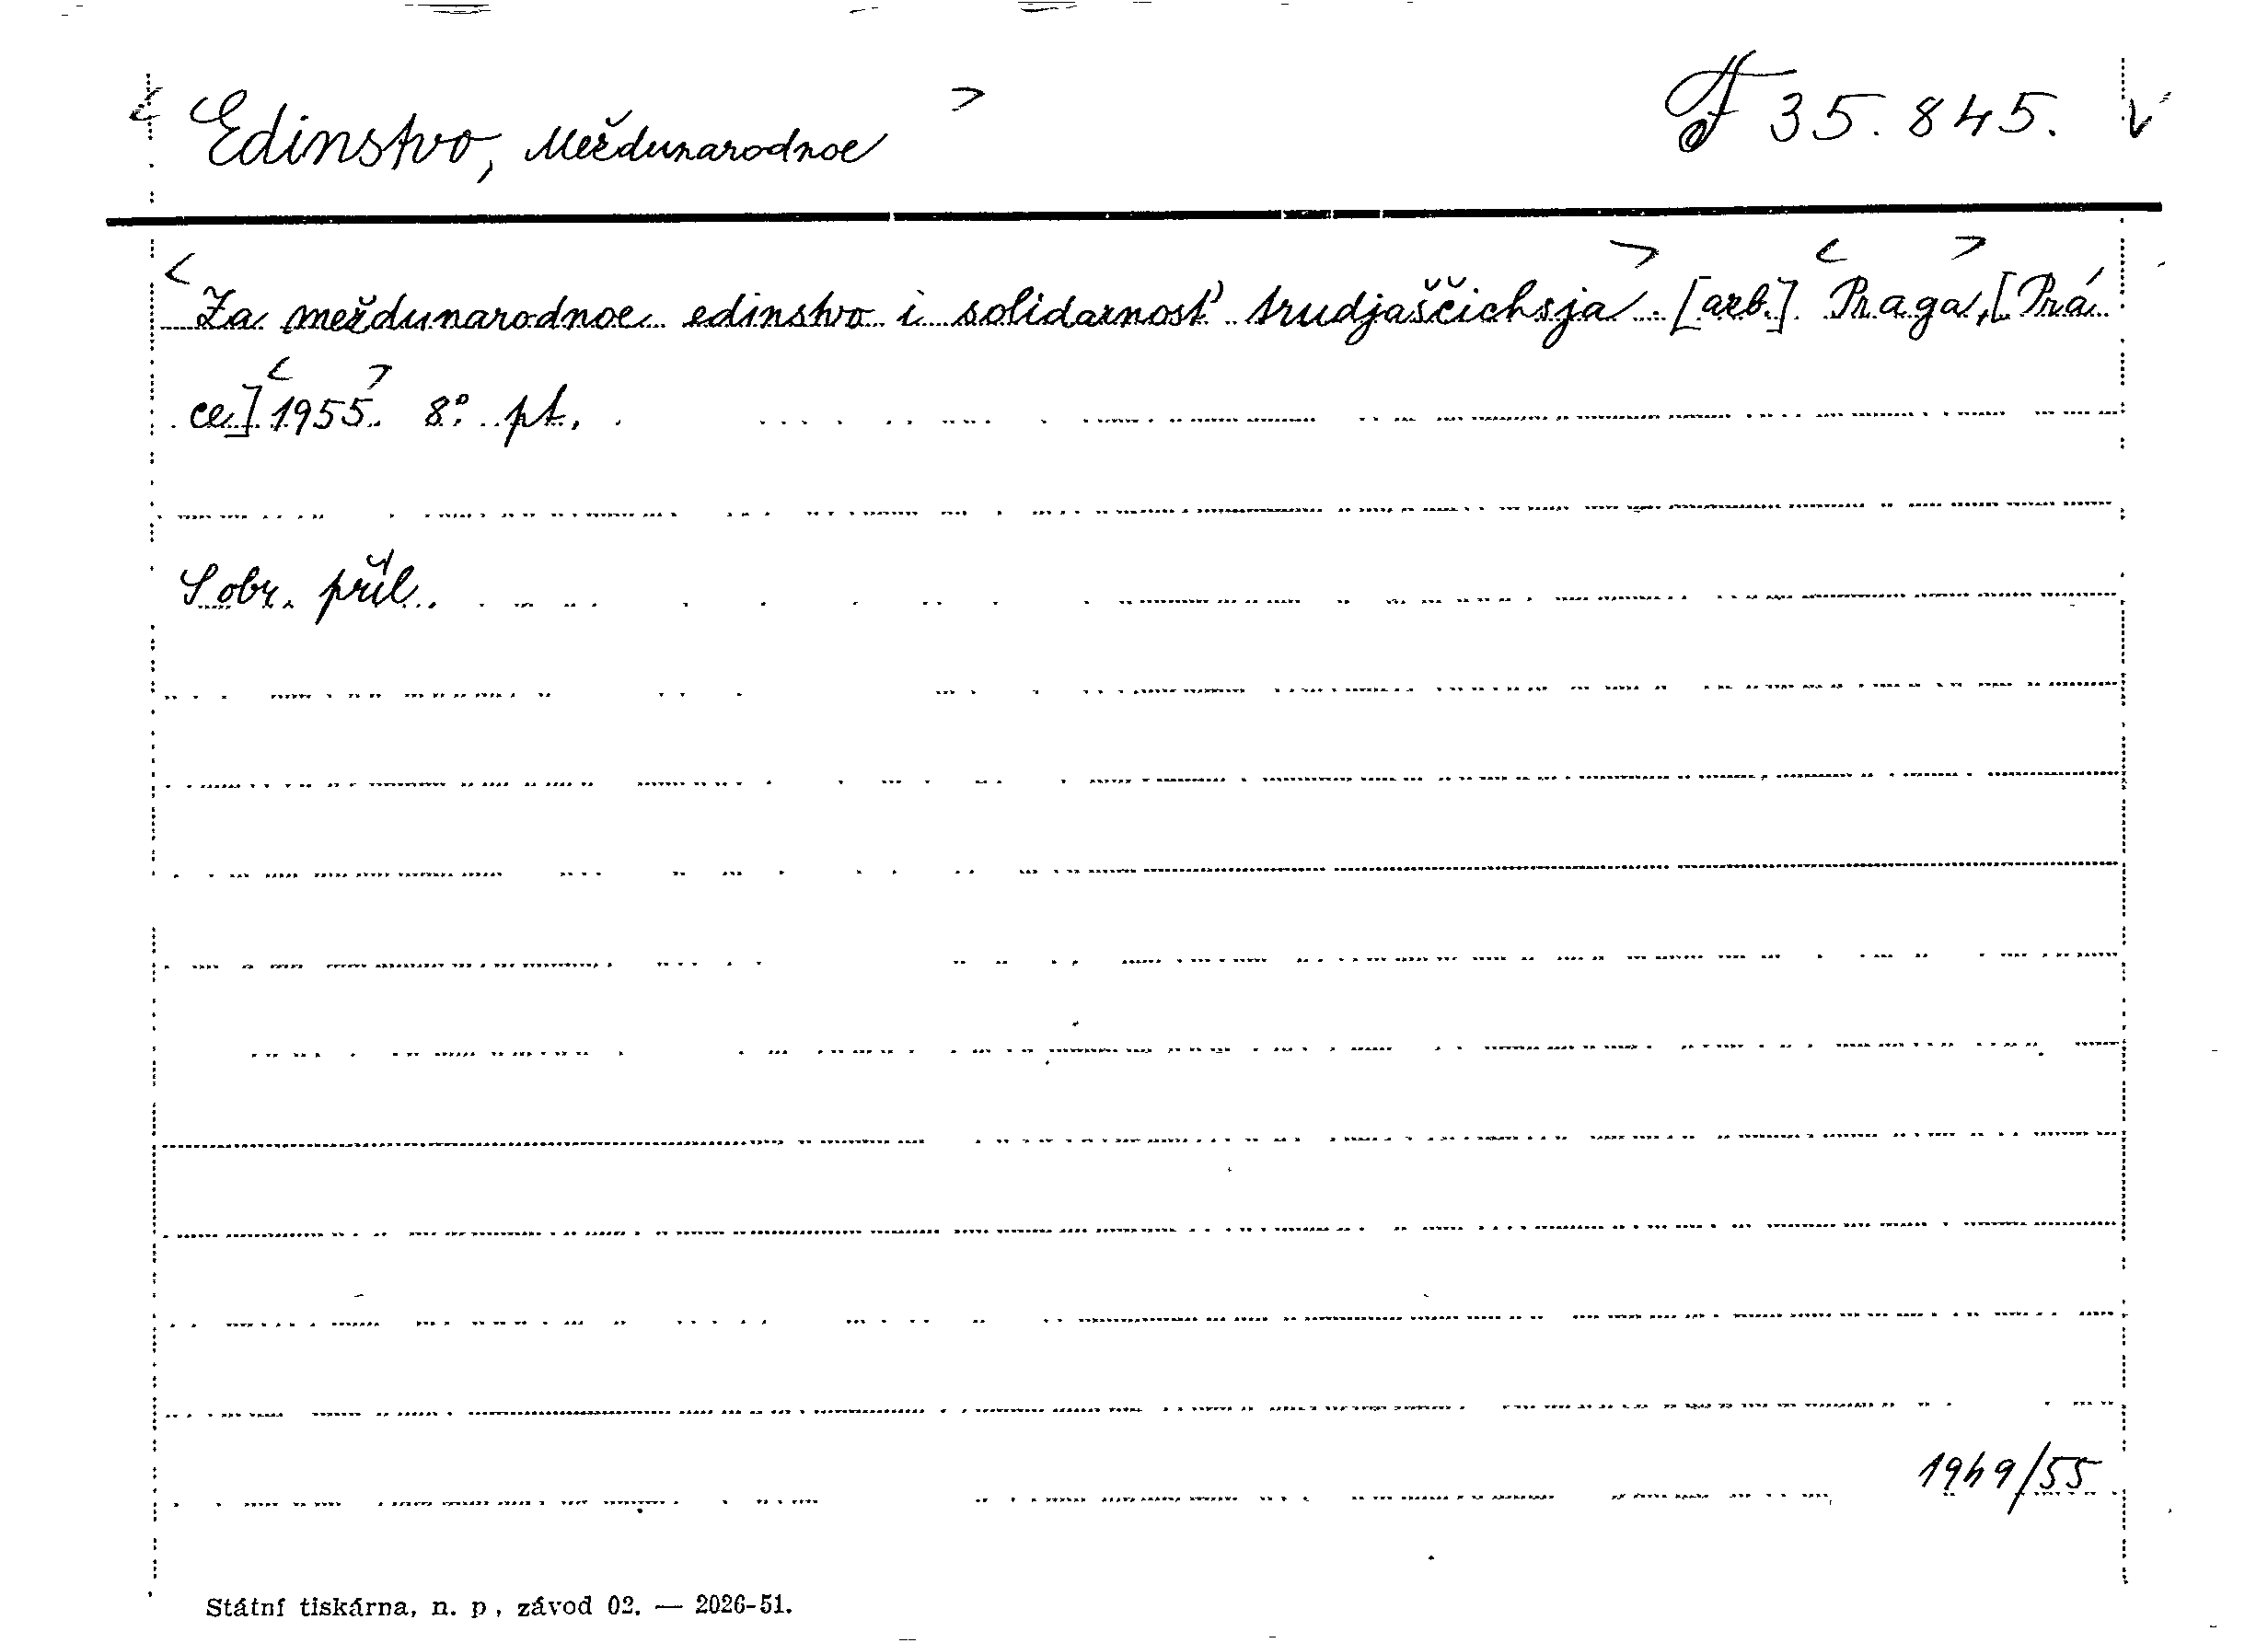 < Edinstvo, Meždunarodnoe > F 35.845. v
< Za meždunarodnoe edinstvo i solidarnost' trudjaščichsja >. [azb.] < Praga >, [Prá
ce] < 1955 >. 8°. pt.
S obr. příl.
1949/55
Státní tiskárna, n. p., závod 02. — 2026-51.